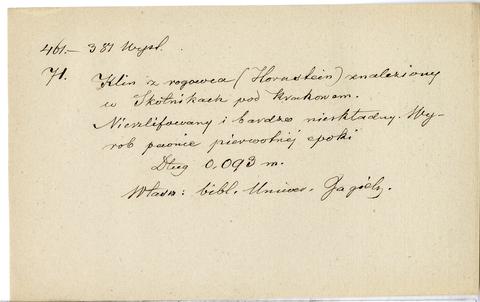 461.— 381 Wyst.
71. Klin z rogowca (Hornstein) znaleziony
w Skotnikach pod Krakowem.
Nieszlifowany i bardzo nieskładny. Wy-
rob pewnie pierwotnéj epoki
Dług 0,093 m.
Własn: bibl. Uniwer. Jagielz.